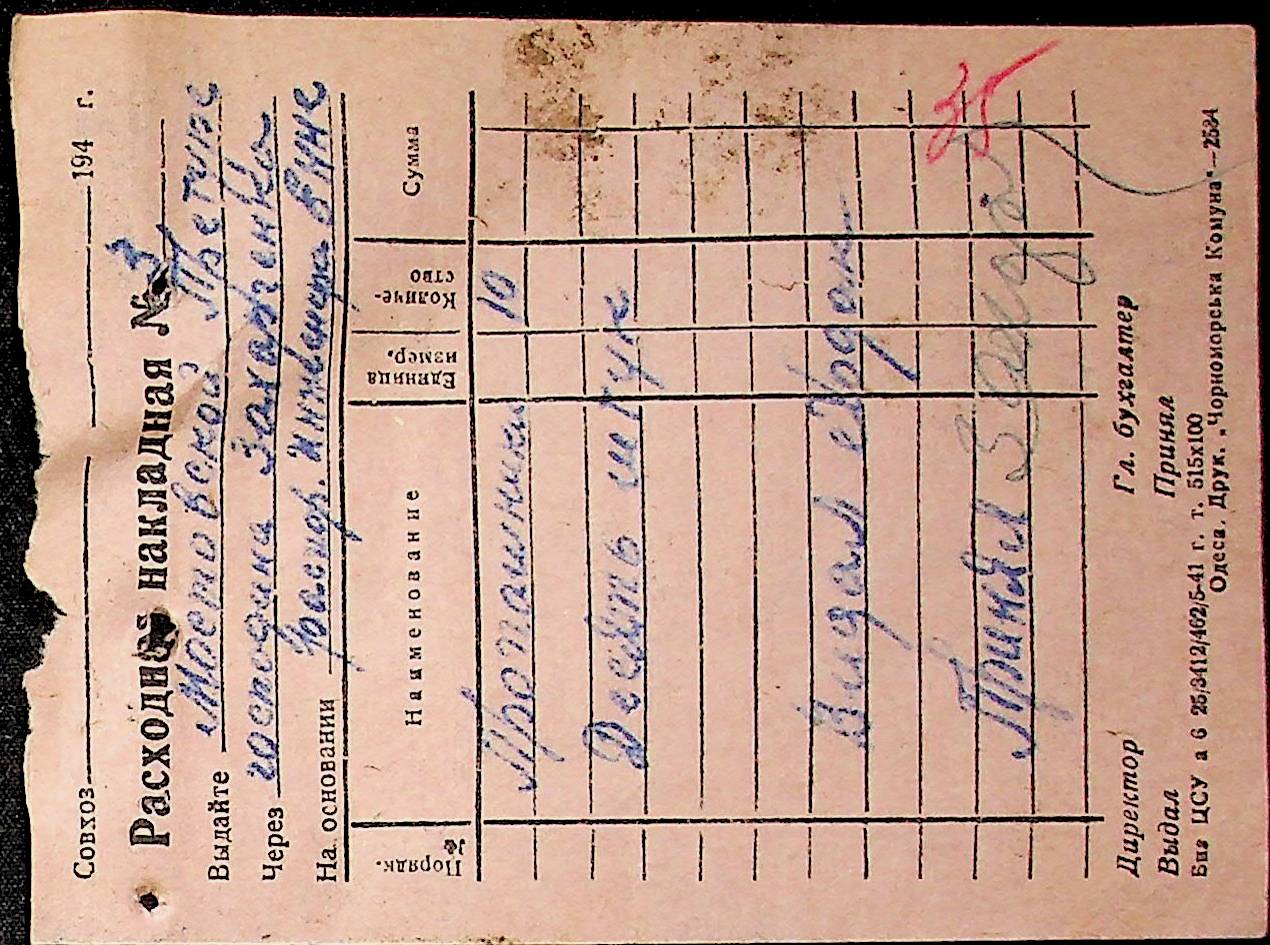 Совхоз 194 г.
Расходная накладная № 3
Выдайте Мостовской
Через господина Захарченко
На основании Распор.
Порядк. № Наименование Единица измер. Количество Сумма
Пропашники 10
Десять штук
Выдал
Принял
35
Директор Гл. бухгалтер
Выдал Принял
Биз ЦСУ а 6 25/3412/462/5-41 г. т. 515х100
Одеса. Друк. „Чорноморська Комуна"—2584